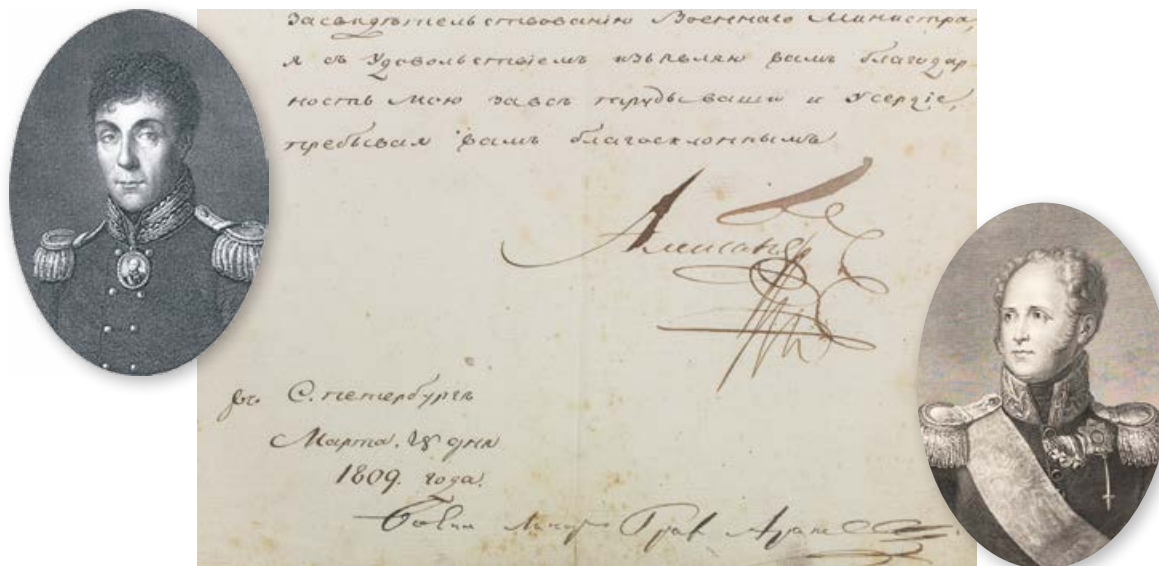 Засвидѣтельствованію Военнаго Министра,
я съ Удовольствіемъ изъявляю вамъ благодар
ность мою за всѣ труды ваши и Усердіе,
пребывая вамъ благосклоннымъ
Александръ
въ С. петербургѣ
Марта. 28 дня
1809. года.
Граф